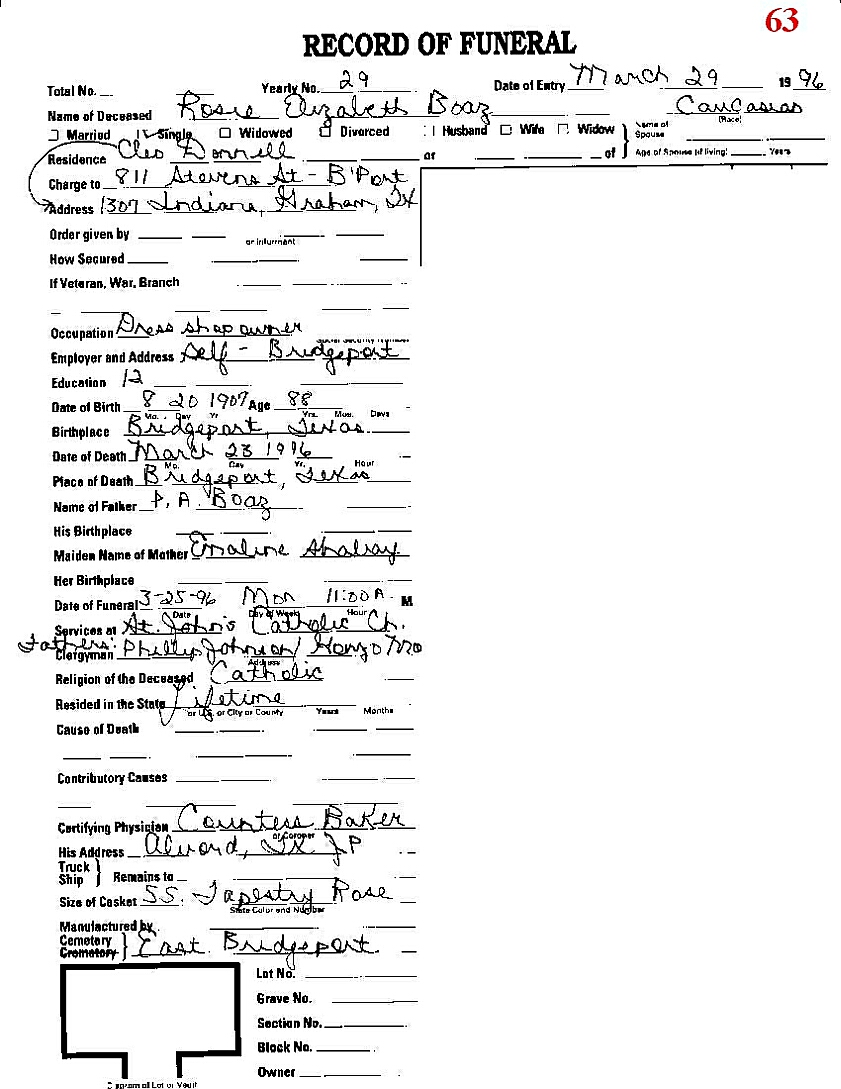 63
RECORD OF FUNERAL
Total No. Yearly No. 29 Date of Entry March 29 1996
Name of Deceased Rosie Elizabeth Boaz Caucasian
(Race)
Married Single Widowed Divorced Husband Wife Widow } Name of Spouse
Residence Cleo Donnell or of Age of Spouse (if living) Years
Charge to 811 Stevens St - B'Port
Address 1307 Indiana, Graham, TX
Order given by
or Informant
How Secured
If Veteran, War, Branch
Occupation Dress shop owner
Social Security Number
Employer and Address Self - Bridgeport
Education 12
Date of Birth 8 20 1907 Age 88
Mo. Day Yr Yrs. Mos. Days
Birthplace Bridgeport, Texas
Date of Death March 23 1996
Mo. Day Yr. Hour
Place of Death Bridgeport, Texas
Name of Father P. A. Boaz
His Birthplace
Maiden Name of Mother Emaline
Her Birthplace
Date of Funeral 3-25-96 Mon 11:00 A M
Date Day of Week Hour
Services at St. John's Catholic Ch.
Fathers:
Clergyman Phillip Johnson/ Gonzo
Address
Religion of the Deceased Catholic
Resided in the State Lifetime
or U.S. or City or County Years Months
Cause of Death
Contributory Causes
Certifying Physician Countess Baker
or Coroner
His Address Alvord, TX JP
Truck
Ship } Remains to
Size of Casket SS. Tapestry Rose
State Color and Number
Manufactured by
Cemetery
Crematory } East Bridgeport
Lot No.
Grave No.
Section No.
Block No.
Owner
Diagram of Lot or Vault